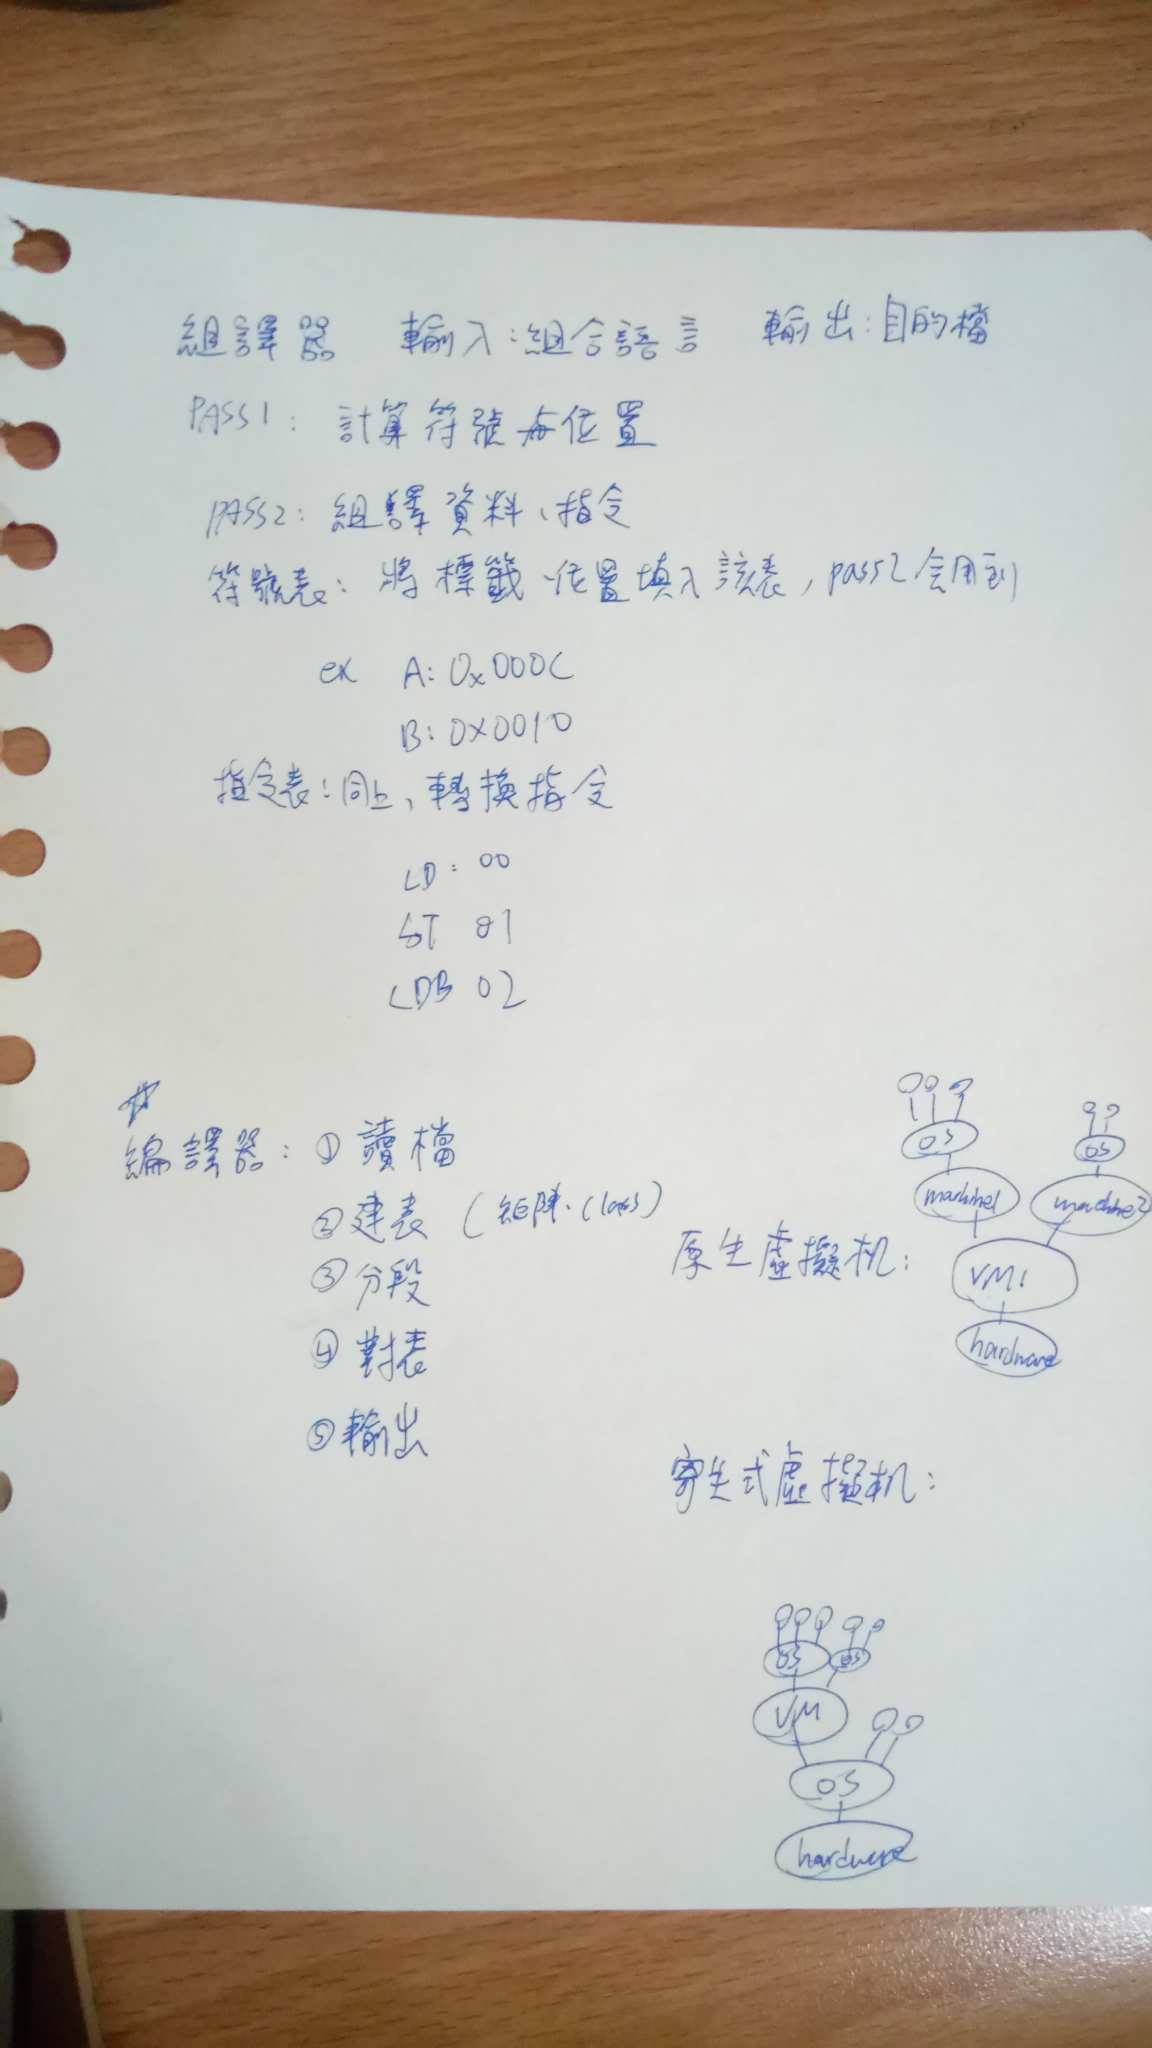 組譯器 輸入:組合語言 輸出:目的檔
PASS1: 計算符號每位置
PASS2: 組譯資料、指令
符號表: 將標籤、位置填入該表, pass2會用到
ex A: 0x000C
B: 0x0010
指令表:同上、轉換指令
LD: 00
ST 01
LDB 02
編譯器: ① 讀檔
② 建表 (矩陣. class)
③ 分段
④ 對表
⑤ 輸出
原生虛擬机:
OS
OS
machine1
machine2
VM1
hardware
寄生式虛擬机:
OS
OS
VM
OS
hardware